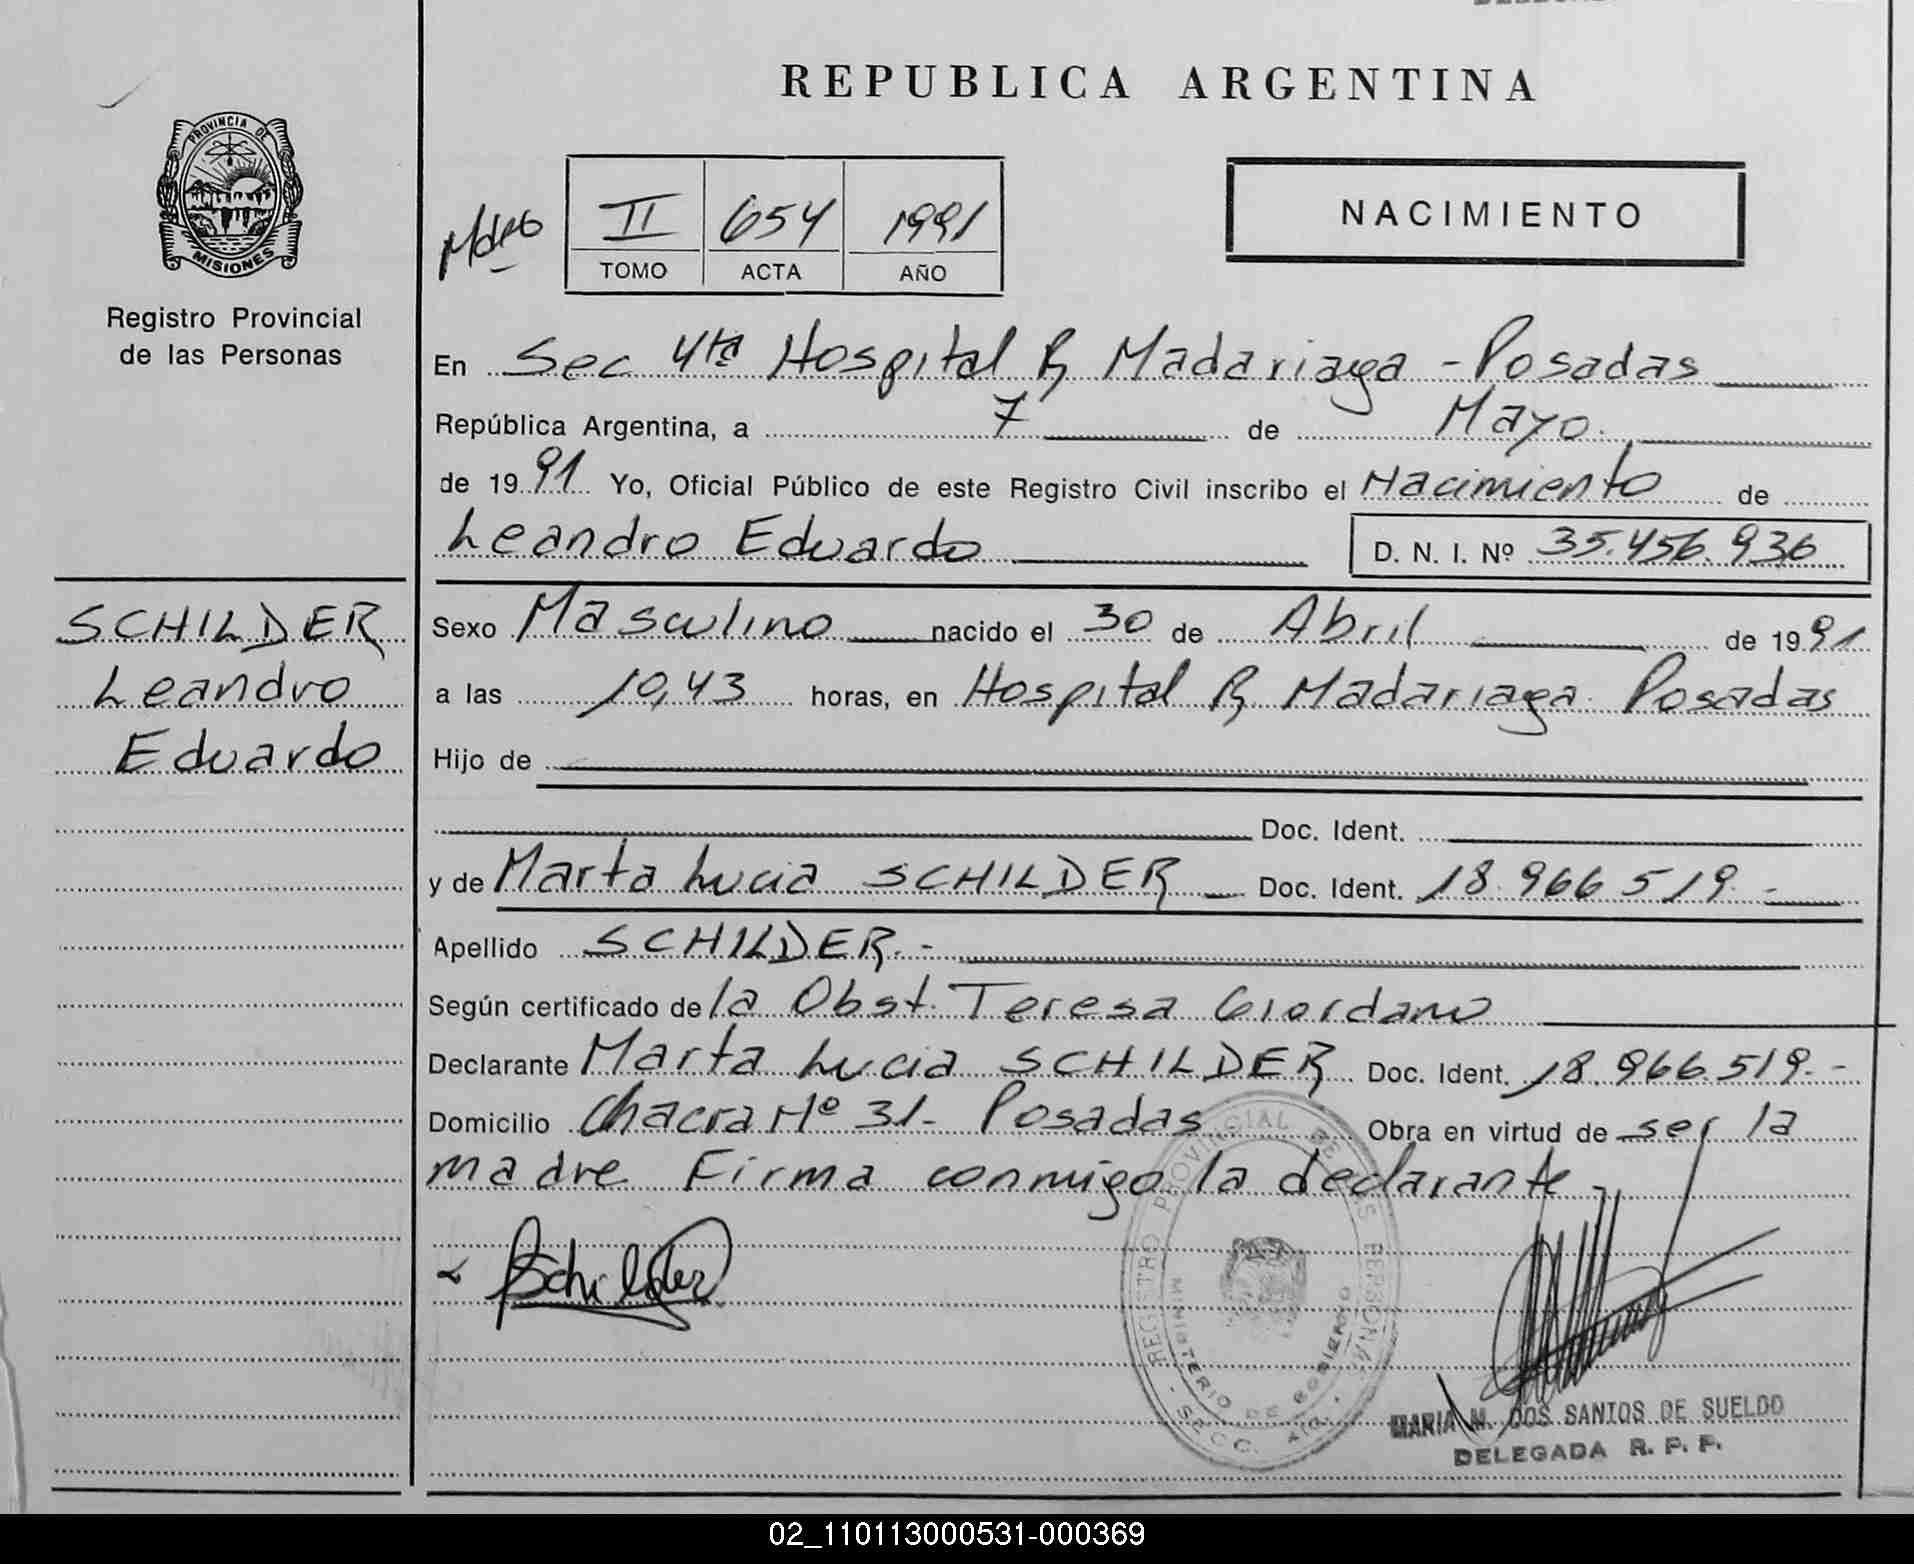 REPUBLICA ARGENTINA
PROVINCIA DE
MISIONES
Registro Provincial
de las Personas
II 654 1991
TOMO ACTA AÑO
NACIMIENTO
En Sec 4ta Hospital R Madariaga - Posadas
República Argentina, a 7 de Mayo.
de 1991 Yo, Oficial Público de este Registro Civil inscribo el Nacimiento de
Leandro Eduardo D. N. I. Nº 35.456.936
SCHILDER
Leandro
Eduardo
Sexo Masculino nacido el 30 de Abril de 1991
a las 10,43 horas, en Hospital R Madariaga Posadas
Hijo de
Doc. Ident.
y de Marta Lucia SCHILDER Doc. Ident. 18.966.519.-
Apellido SCHILDER.-
Según certificado de la Obst. Teresa Giordano
Declarante Marta Lucia SCHILDER Doc. Ident. 18.966.519.-
Domicilio Chacra Nº 31- Posadas Obra en virtud de ser la
madre Firma conmigo la declarante-
Schilder
REGISTRO PROVINCIAL DE LAS PERSONAS
MINISTERIO DE GOBIERNO
SECC.
MARIA M. DOS SANTOS DE SUELDO
DELEGADA R. P. P.
02_110113000531-000369